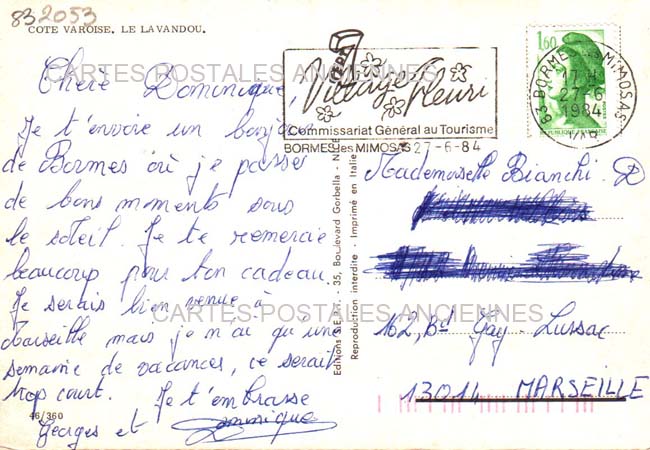 83 2053
COTE VAROISE. LE LAVANDOU.
Chère Dominique,
Je t'envoie un bonjour
de Bormes où je passe
de bons moments sous
le soleil. Je te remercie
beaucoup pour ton cadeau.
Je serais bien venue à
Marseille mais je n'ai qu'une
semaine de vacances, ce serait
trop court. Je t'embrasse
Georges et Dominique
46/360
CARTES POSTALES ANCIENNES
CARTES POSTALES ANCIENNES
Village fleuri
Commissariat Général au Tourisme
BORMES les MIMOSAS 27-6-84
1,60
83 BORMES LES MIMOSAS
17 H
27-6
1984
VAR
Editions S.E.P.T. - 35, Boulevard Gorbella - N
Reproduction interdite - Imprimé en Italie
Mademoiselle Bianchi D
162, Bd Gay-Lussac
13014 MARSEILLE